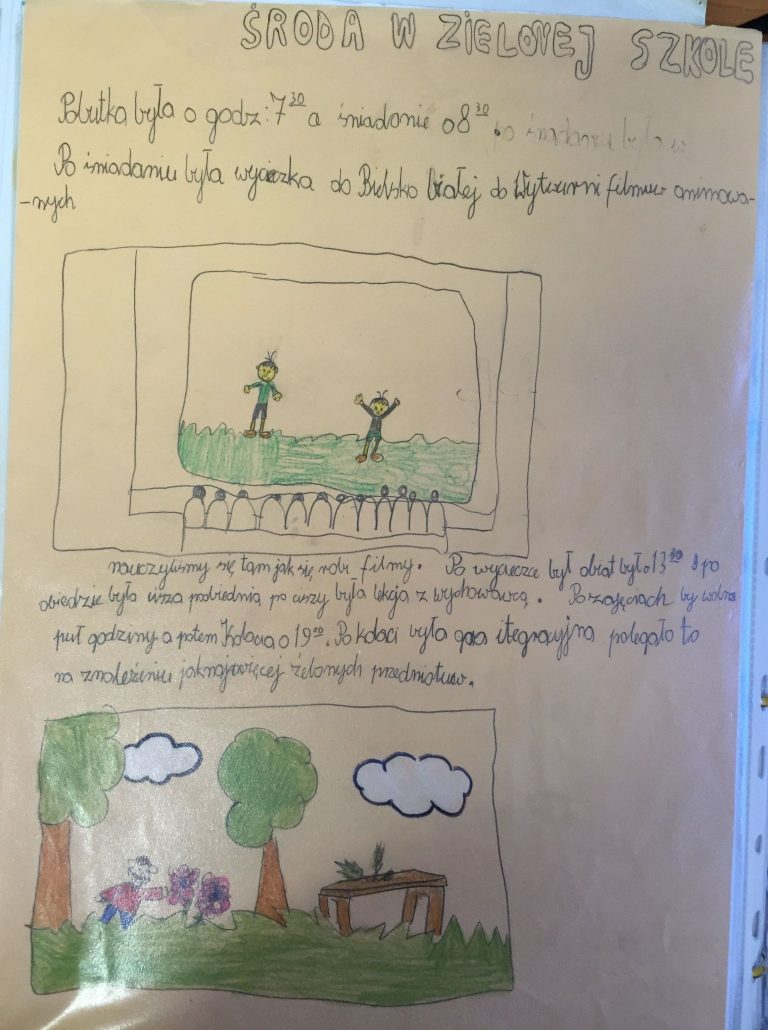 ŚRODA W ZIELONEJ SZKOLE
Pobutka była o godz: 7³⁰ a śniadanie o 8³⁰. po śniadaniu była w
Po śniadaniu była wycieczka do Bielsko Białej do Wytwurni filmuw animowa-
-nych
nauczyliśmy się tam jak się robi filmy. Po wycieczce był obiat był o 13³⁰ po
obiedzie była cisza pobiednia po ciszy była lekcja z wychowawcą. Po zajęciach by wolne
puł godziny a potem Kolacia o 19⁰⁰. Po kolaci była gra itegracyjna polegało to
na znaleźieniu jaknajwięcej źelonych przedmiotuw.